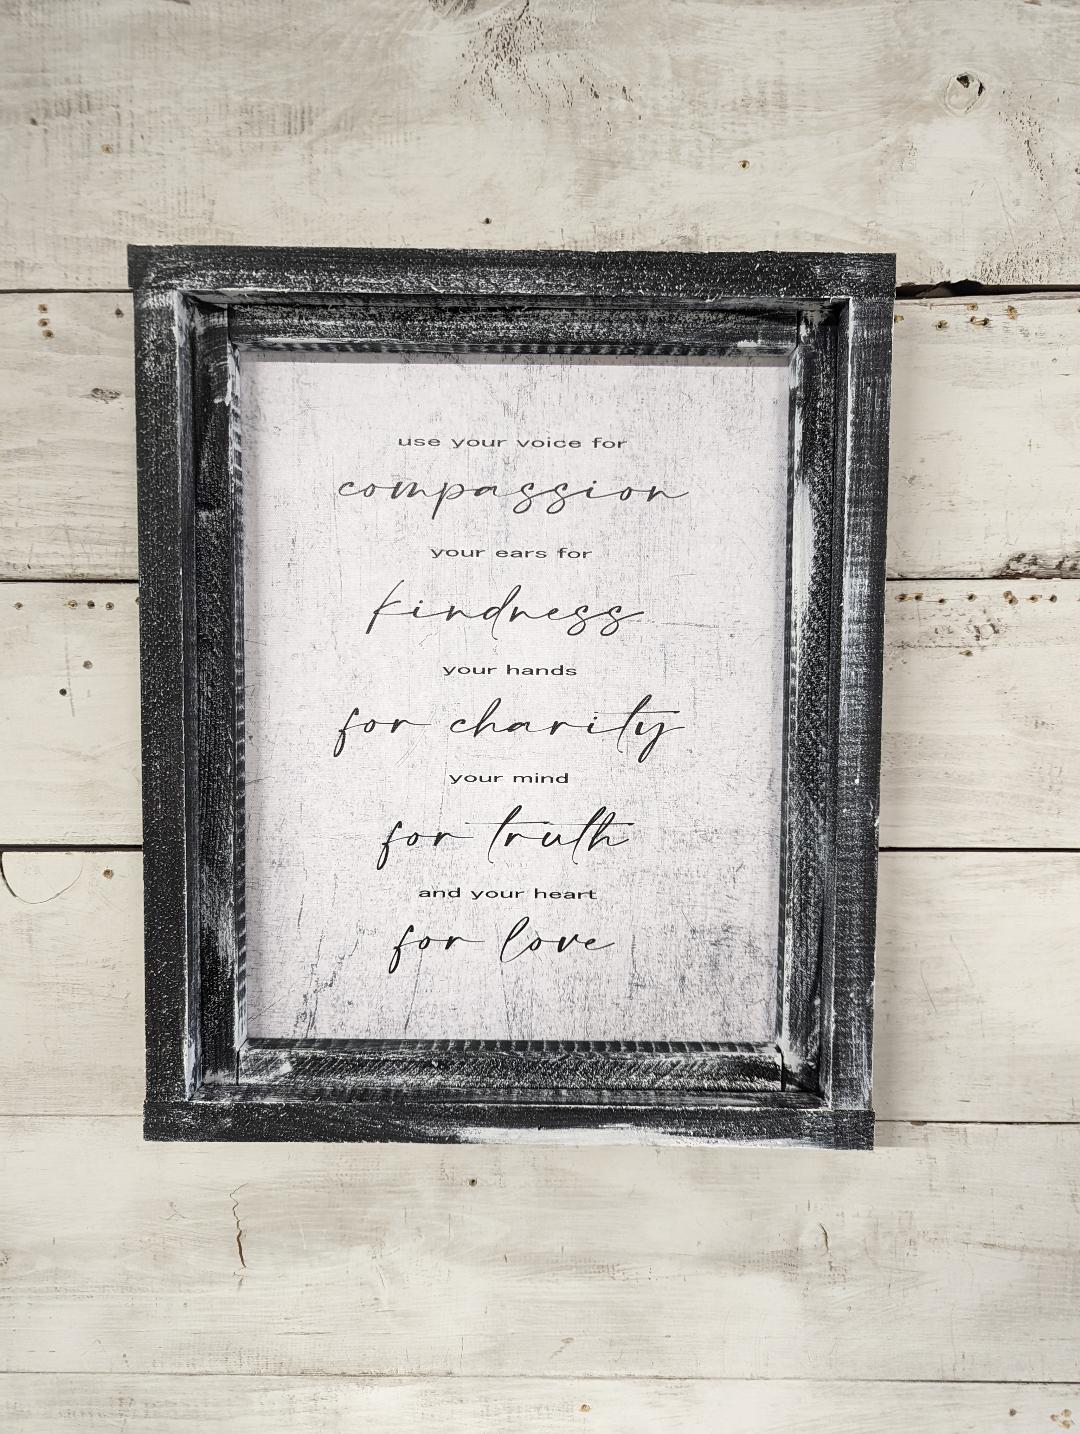 use your voice for
compassion
your ears for
kindness
your hands
for charity
your mind
for truth
and your heart
for love